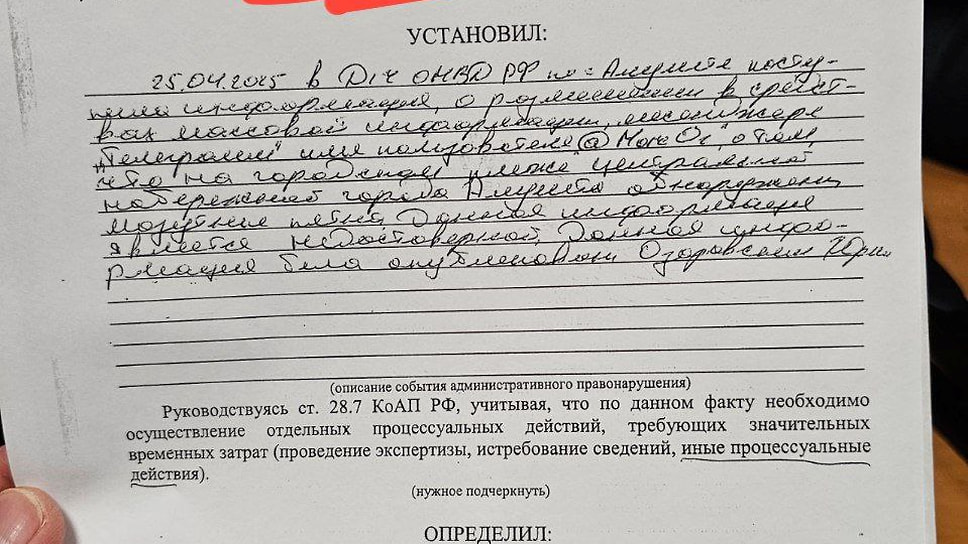 УСТАНОВИЛ:
25.04.2025 в ДЧ ОМВД РФ по г. Анапа посту-
пила информация, о размещении в средст-
вах массовой информации, мессенджере
"Телеграмм" имя пользователя @ More O", о том,
что на городском пляже центральной
набережной города обнаружены
мазутные пятна. Данная информация
является недостоверной. Данная инфо-
рмация была опубликована Озаровским Юри
(описание события административного правонарушения)
Руководствуясь ст. 28.7 КоАП РФ, учитывая, что по данному факту необходимо
осуществление отдельных процессуальных действий, требующих значительных
временных затрат (проведение экспертизы, истребование сведений, иные процессуальные
действия).
(нужное подчеркнуть)
ОПРЕДЕЛИЛ: